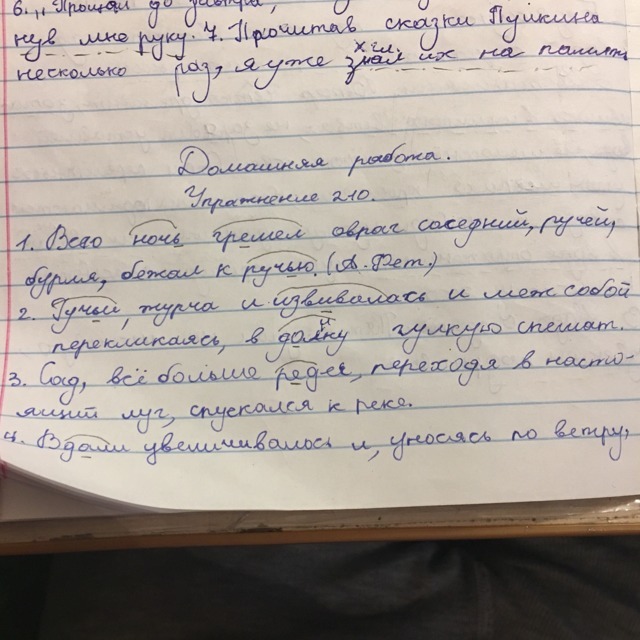 6. „Прощай до завтра,
нув мне руку. 7. Прочитав сказки Пушкина
несколько раз, я уже знал их на память
х гл.
Домашняя работа.
Упражнение 210.
1. Всю ночь гремел овраг соседний, ручей,
бурля, бежал к ручью. (А. Фет.)
2. Ручьи, журча и извивалась и меж собой
перекликаясь, в долину гулкую спешат.
3. Сад, всё больше редея, переходя в насто-
ящий луг, спускался к реке.
4. Вдали увеличивалось и, уносясь по ветру,